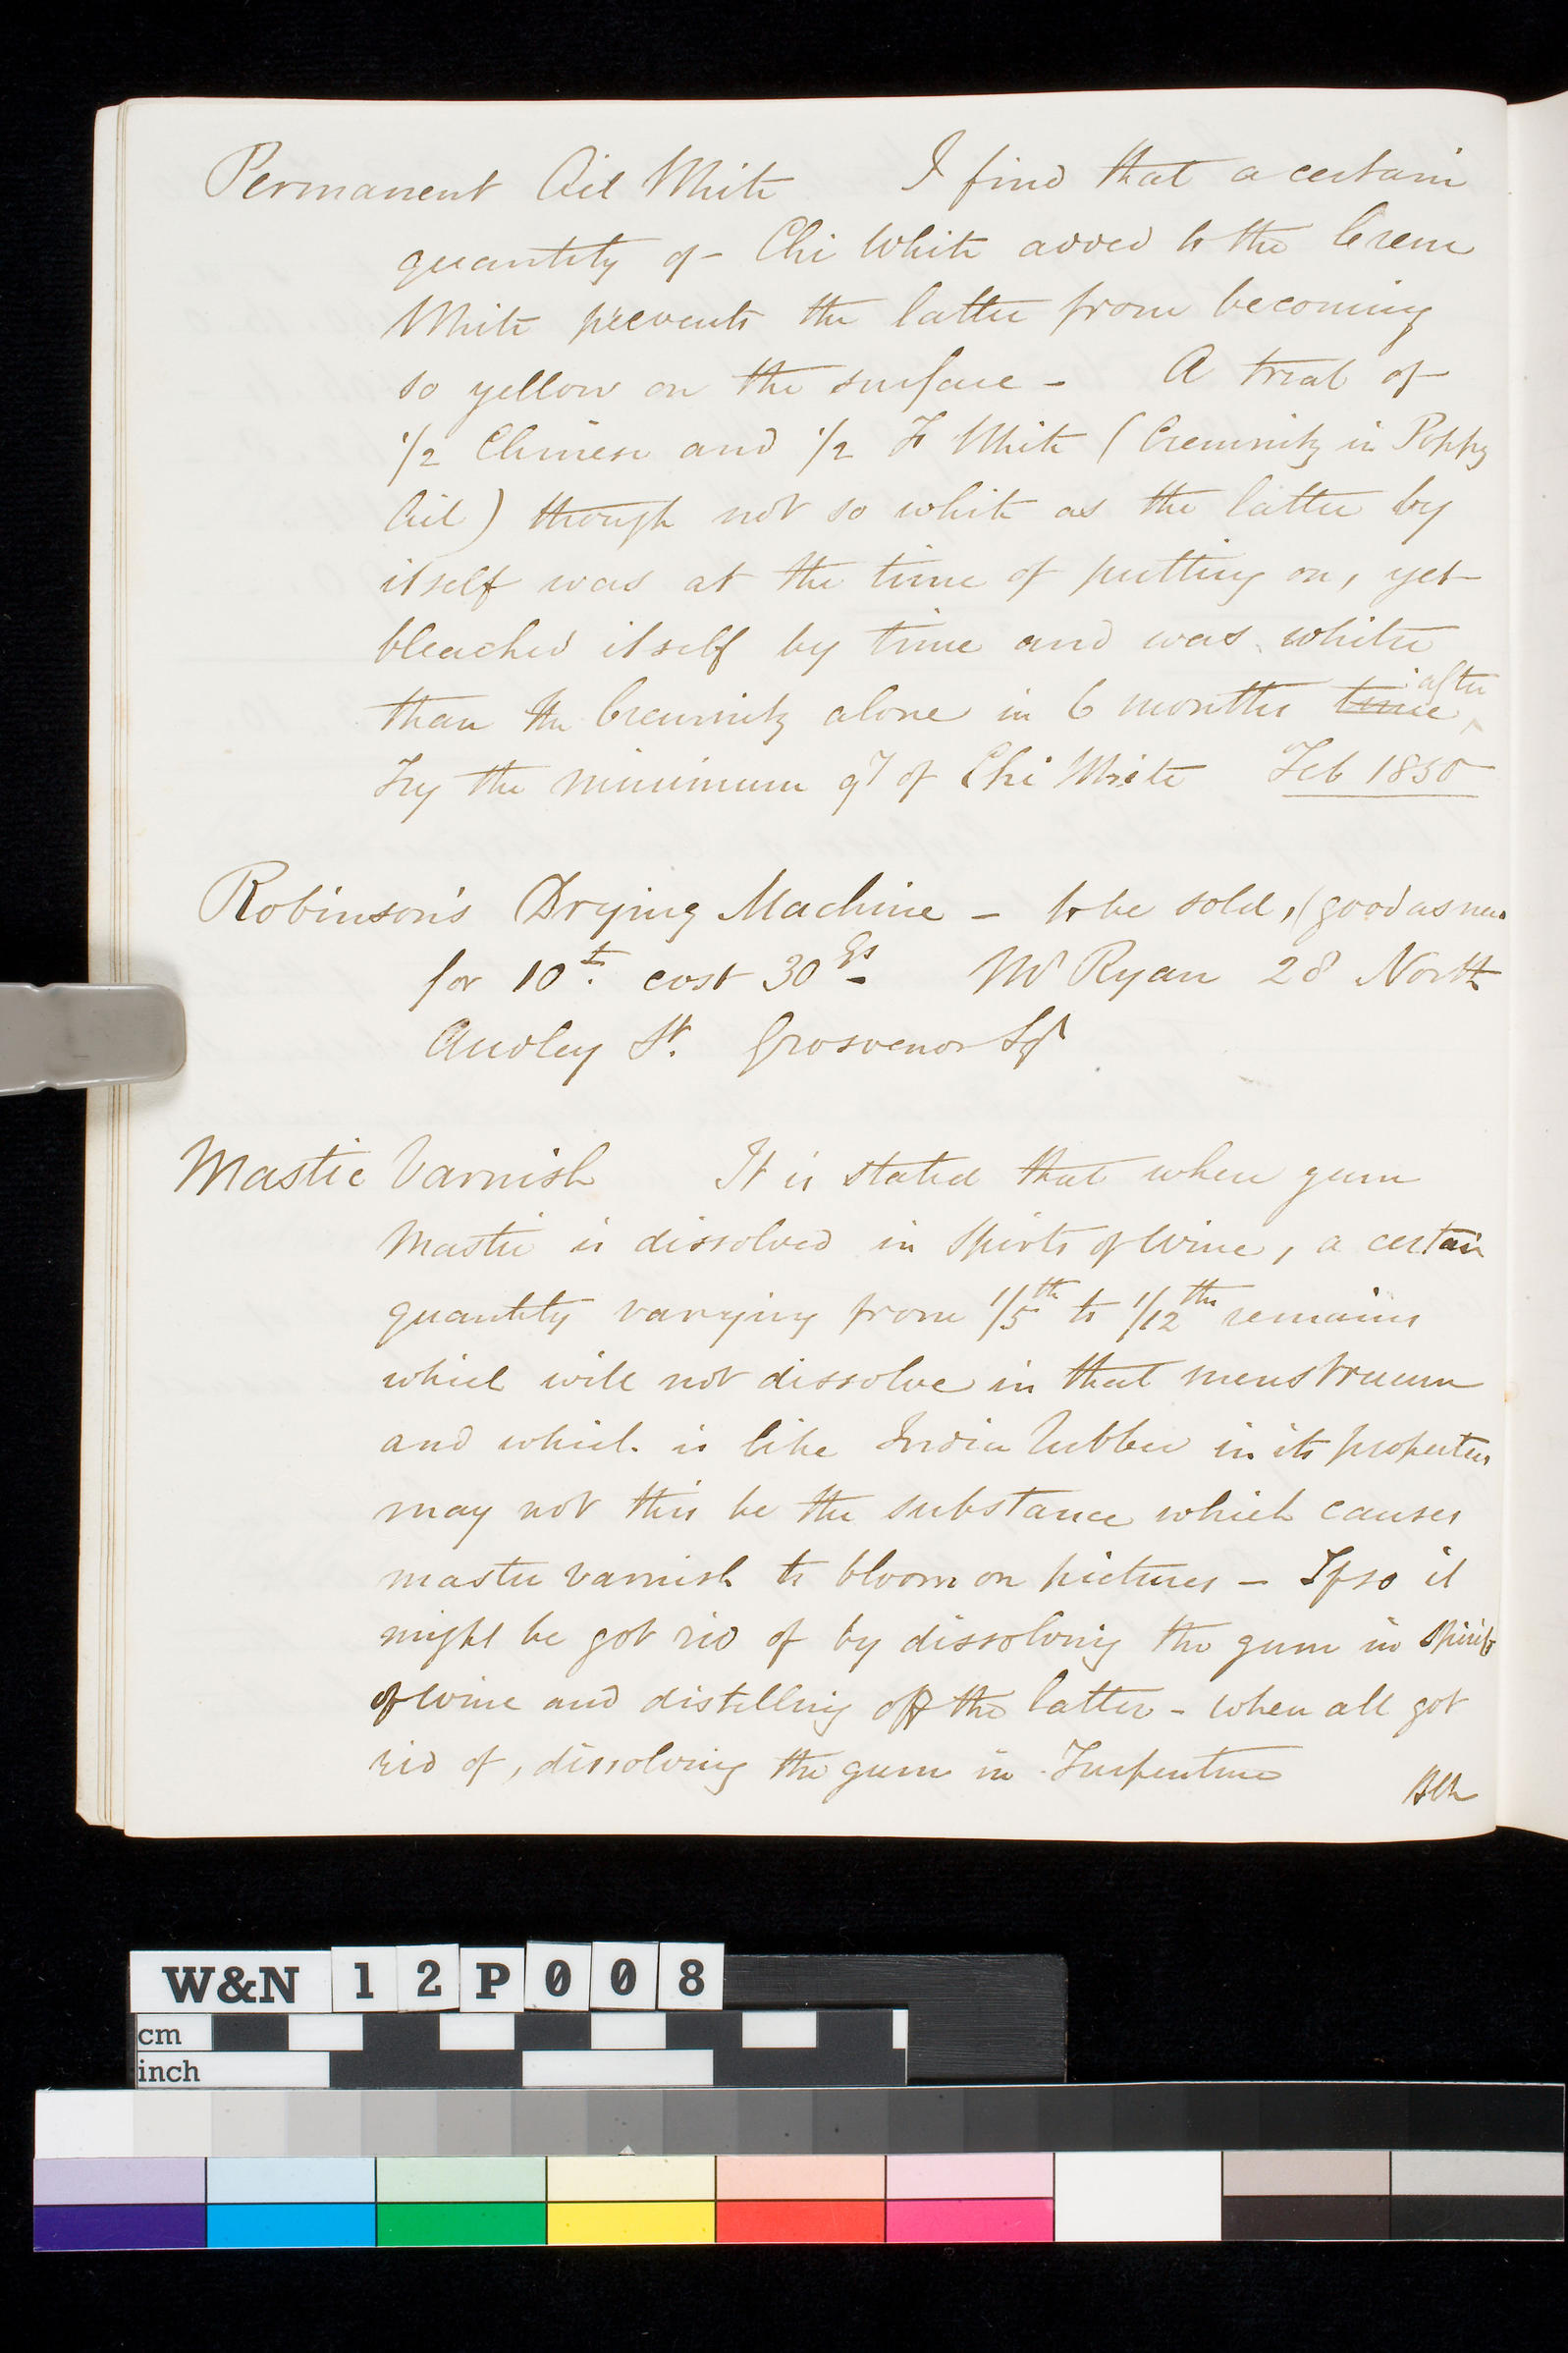 Permanent Oil White I find that a certain
quantity of Chi White added to the Crem
White prevents the latter from becoming
so yellow on the surface - A trial of
1/2 Chinese and 1/2 Fl White (Cremnitz in Poppy
Oil) though not so white as the latter by
itself was at the time of putting on, yet
bleached itself by time and was whiter
than the Cremnitz alone in 6 months time after
Try the minimum qy of Chi White Feb 1850
Robinson's Drying Machine - to be sold, (good as new
for 10£. cost 30 Gs Mr Ryan 28 North
Audley St. Grosvenor Sqr
Mastic Varnish It is stated that when gum
Mastic is dissolved in Spirits of Wine, a certain
quantity varying from 1/5th to 1/12th remains
which will not dissolve in that menstruum
and which is like India Rubber in its properties
may not this be the substance which causes
mastic varnish to bloom on pictures - If so it
might be got rid of by dissolving the gum in spirits
of wine and distilling off the latter - when all got
rid of, dissolving the gum in Turpentine
W&N 12P008
cm
inch